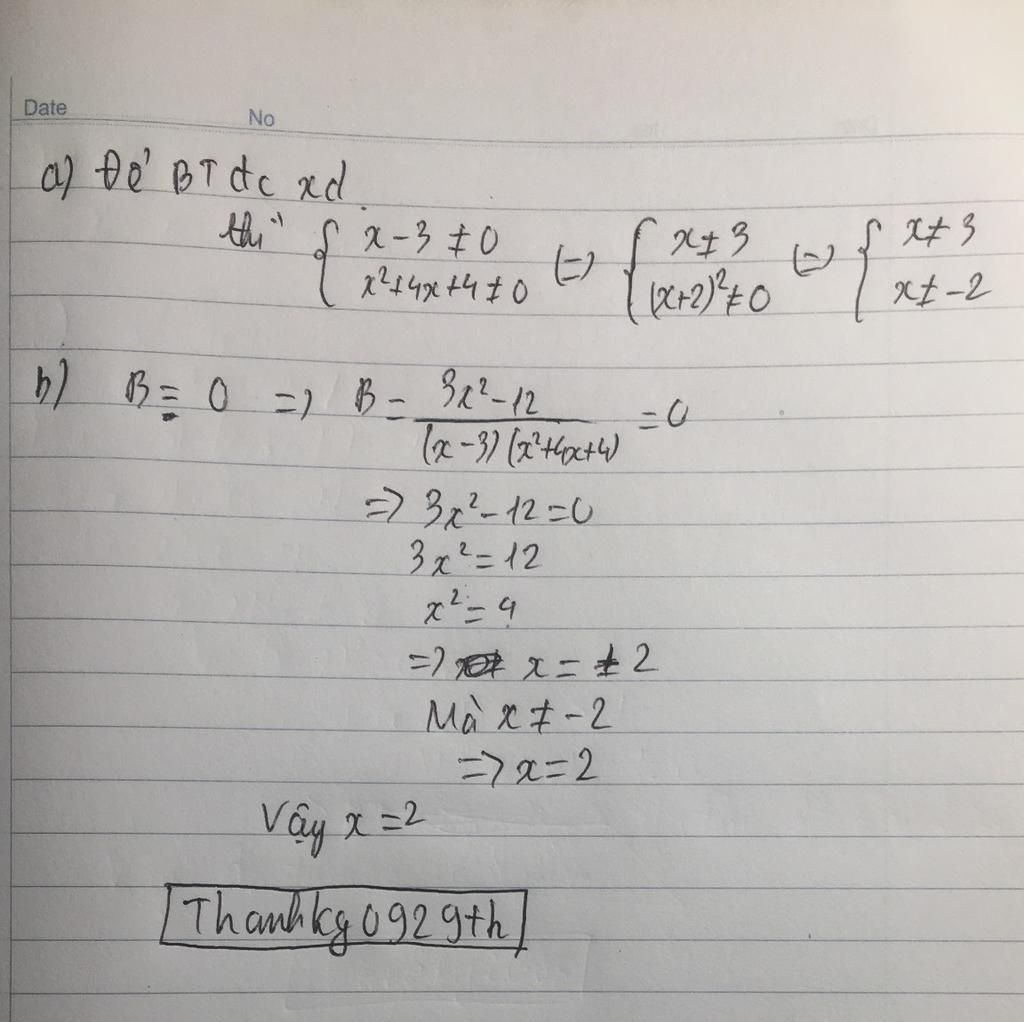 Date No
a) Để BT đc xd
thì { x - 3 ≠ 0 (=) { x ≠ 3 (=) { x ≠ 3
x² + 4x + 4 ≠ 0 (x+2)² ≠ 0 x ≠ -2
b) B = 0 => B = 3x² - 12 / (x - 3) (x² + 4x + 4) = 0
=> 3x² - 12 = 0
3x² = 12
x² = 4
=> x = ±2
Mà x ≠ -2
=> x = 2
Vậy x = 2
Thanhkg0929th